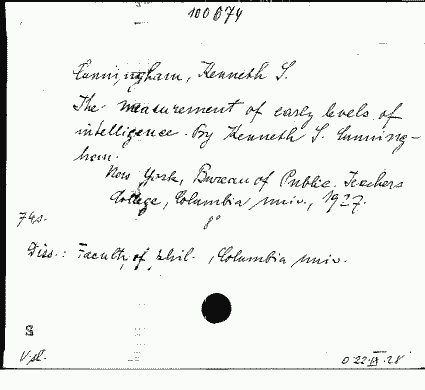 100674
Cunningham, Kenneth S.
The measurement of early levels of
intelligence. By Kenneth S. Cunning-
ham.
New York, Bureau of Public. Teachers
College, Columbia univ., 1927.
8°
74 s.
Diss.: Faculty of phil., Columbia univ.
S
V.pl.
D 22.IX.28